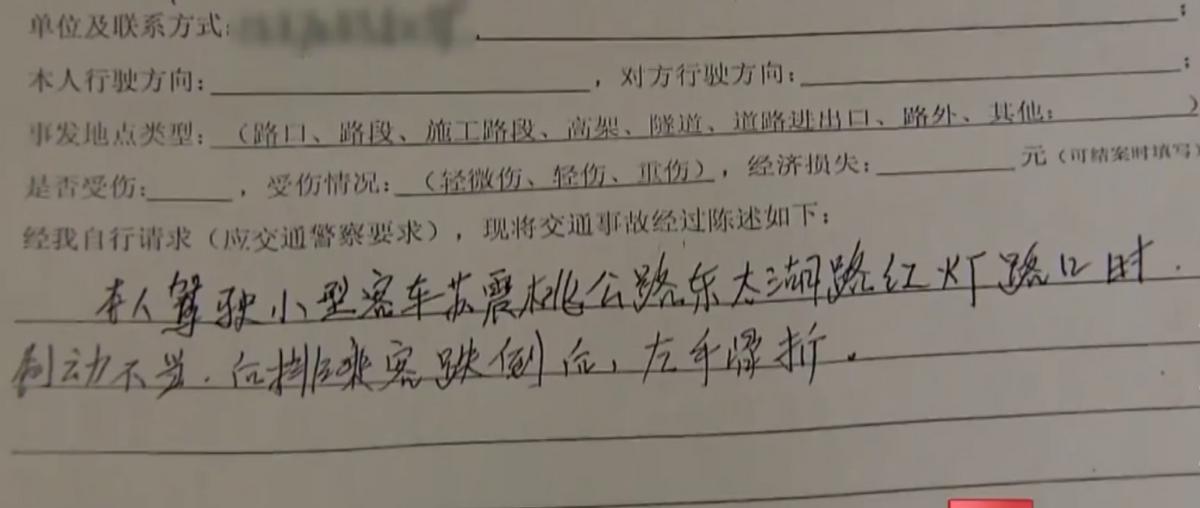 单位及联系方式:;
本人行驶方向:,对方行驶方向:;
事发地点类型:(路口、路段、施工路段、高架、隧道、道路进出口、路外、其他:)
是否受伤:,受伤情况:(轻微伤、轻伤、重伤),经济损失:元(可结案时填写)
经我自行请求(应交通警察要求),现将交通事故经过陈述如下:
本人驾驶小型客车苏震桃公路东太湖路红灯路口时.
制动不当.后排乘客跌倒后,左手骨折.